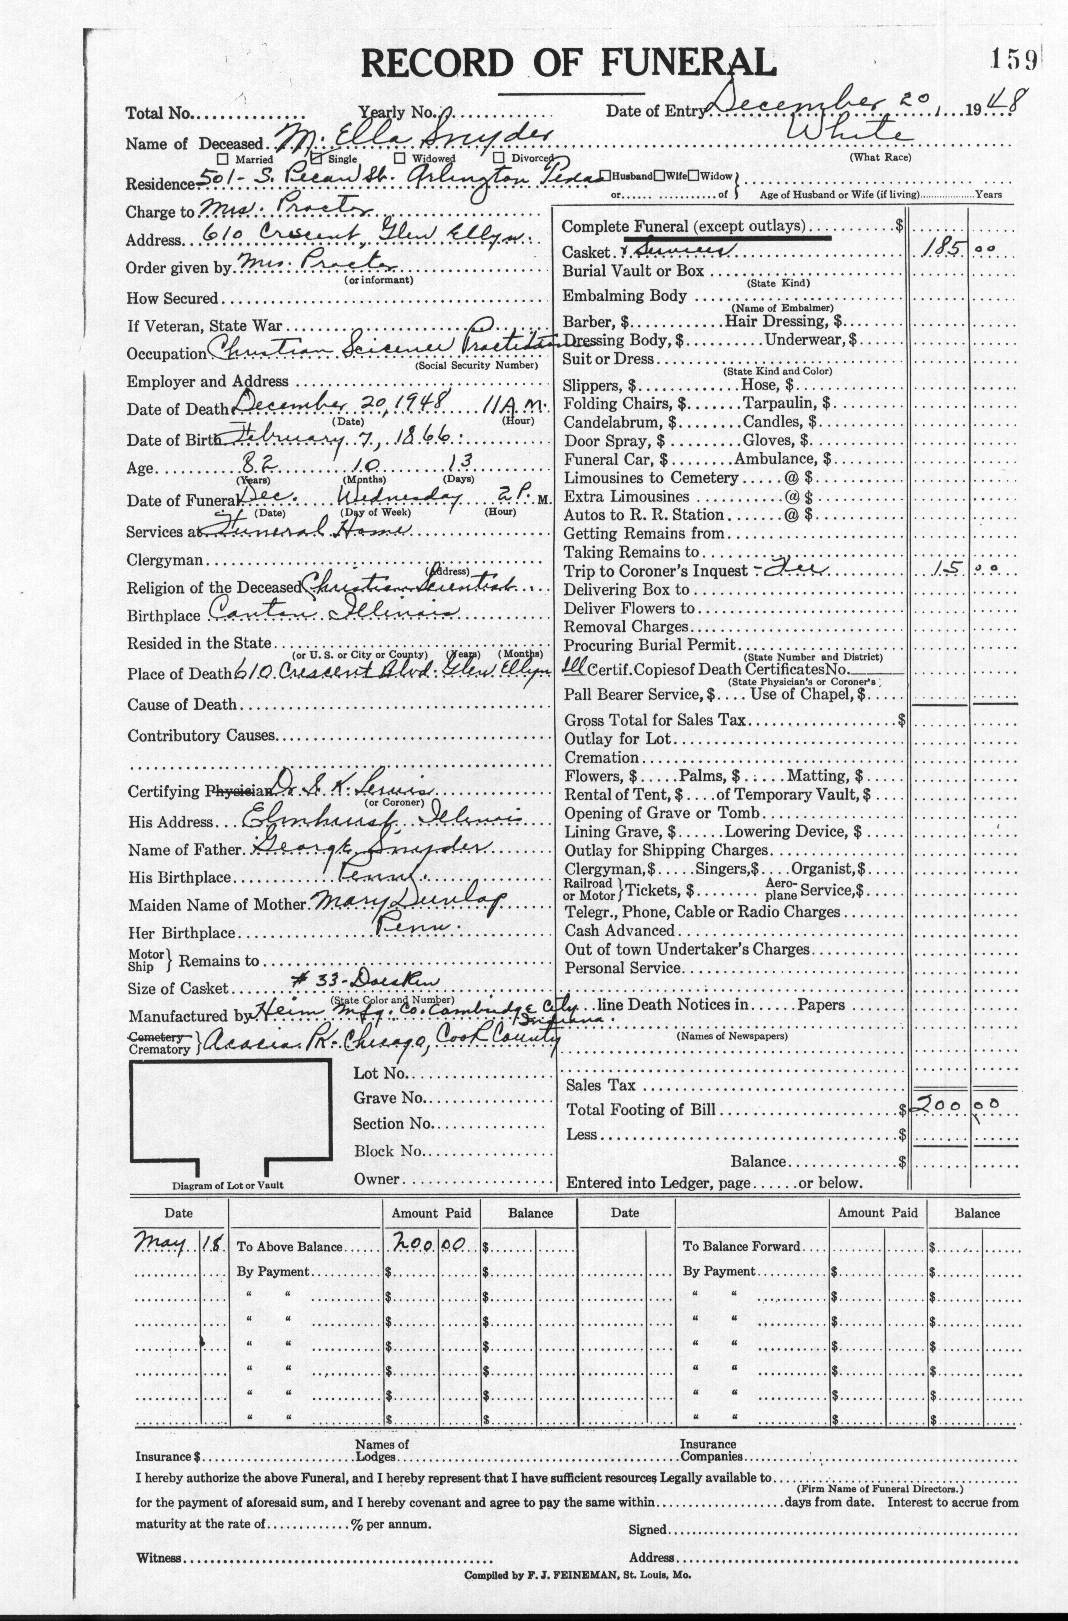 RECORD OF FUNERAL
159
Total No. Yearly No. Date of Entry December 20, 1948
Name of Deceased M. Ella Snyder White
Married Single Widowed Divorced (What Race)
Residence 501- S. Pecan St. Arlington Texas Husband Wife Widow
or of Age of Husband or Wife (if living) Years
Charge to Mrs. Procter
Address 610 Crescent, Glen Ellyn.
Order given by Mrs. Procter
(or informant)
How Secured
If Veteran, State War
Occupation Christian Science Practitioner
(Social Security Number)
Employer and Address
Date of Death December 20, 1948 11 A.M.
(Date) (Hour)
Date of Birth February 7, 1866
Age 82 10 13
(Years) (Months) (Days)
Date of Funeral Dec. Wednesday 2 P. M.
(Date) (Day of Week) (Hour)
Services at Funeral Home
Clergyman
(Address)
Religion of the Deceased Christian Scientist
Birthplace Canton Illinois
Resided in the State
(or U. S. or City or County) (Years) (Months)
Place of Death 610 Crescent Blvd. Glen Ellyn Ill
Cause of Death
Contributory Causes
Certifying Physician Dr. S. K. Lewis
(or Coroner)
His Address Elmhurst, Illinois
Name of Father George Snyder
His Birthplace Penn.
Maiden Name of Mother Mary Dunlap
Her Birthplace Penn.
Motor
Ship } Remains to
Size of Casket # 33- Doeskin
(State Color and Number)
Manufactured by Heim Mfg. Co. Cambridge City
Indiana.
Cemetery
Crematory } Acacia Pk- Chicago, Cook County
Lot No.
Grave No.
Section No.
Block No.
Owner
Diagram of Lot or Vault
Complete Funeral (except outlays) $
Casket & Services 185 00
Burial Vault or Box
(State Kind)
Embalming Body
(Name of Embalmer)
Barber, $ Hair Dressing, $
Dressing Body, $ Underwear, $
Suit or Dress
(State Kind and Color)
Slippers, $ Hose, $
Folding Chairs, $ Tarpaulin, $
Candelabrum, $ Candles, $
Door Spray, $ Gloves, $
Funeral Car, $ Ambulance, $
Limousines to Cemetery @ $
Extra Limousines @ $
Autos to R. R. Station @ $
Getting Remains from
Taking Remains to
Trip to Coroner's Inquest - Fee 15 00
Delivering Box to
Deliver Flowers to
Removal Charges
Procuring Burial Permit
(State Number and District)
Certif. Copies of Death Certificates No.
(State Physician's or Coroner's)
Pall Bearer Service, $ Use of Chapel, $
Gross Total for Sales Tax $
Outlay for Lot
Cremation
Flowers, $ Palms, $ Matting, $
Rental of Tent, $ of Temporary Vault, $
Opening of Grave or Tomb
Lining Grave, $ Lowering Device, $
Outlay for Shipping Charges
Clergyman, $ Singers, $ Organist, $
Railroad
or Motor } Tickets, $ Aero-
plane Service, $
Telegr., Phone, Cable or Radio Charges
Cash Advanced
Out of town Undertaker's Charges
Personal Service
line Death Notices in Papers
(Names of Newspapers)
Sales Tax
Total Footing of Bill $ 200 00
Less $
Balance $
Entered into Ledger, page or below.
Date Amount Paid Balance Date Amount Paid Balance
May 18 To Above Balance 200 00 $ To Balance Forward $
By Payment $ $ By Payment $ $
“ “ $ $ “ “ $ $
“ “ $ $ “ “ $ $
“ “ $ $ “ “ $ $
“ “ $ $ “ “ $ $
“ “ $ $ “ “ $ $
“ “ $ $ “ “ $ $
Insurance $ Names of
Lodges Insurance
Companies
I hereby authorize the above Funeral, and I hereby represent that I have sufficient resources Legally available to
(Firm Name of Funeral Directors.)
for the payment of aforesaid sum, and I hereby covenant and agree to pay the same within days from date. Interest to accrue from
maturity at the rate of % per annum.
Signed
Witness Address
Compiled by F. J. FEINEMAN, St. Louis, Mo.